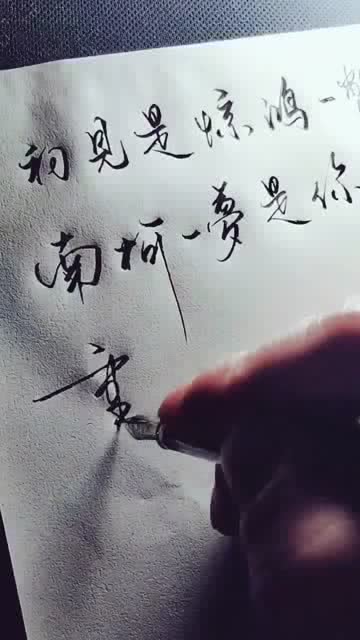 初見是惊鸿一
南柯一夢是你